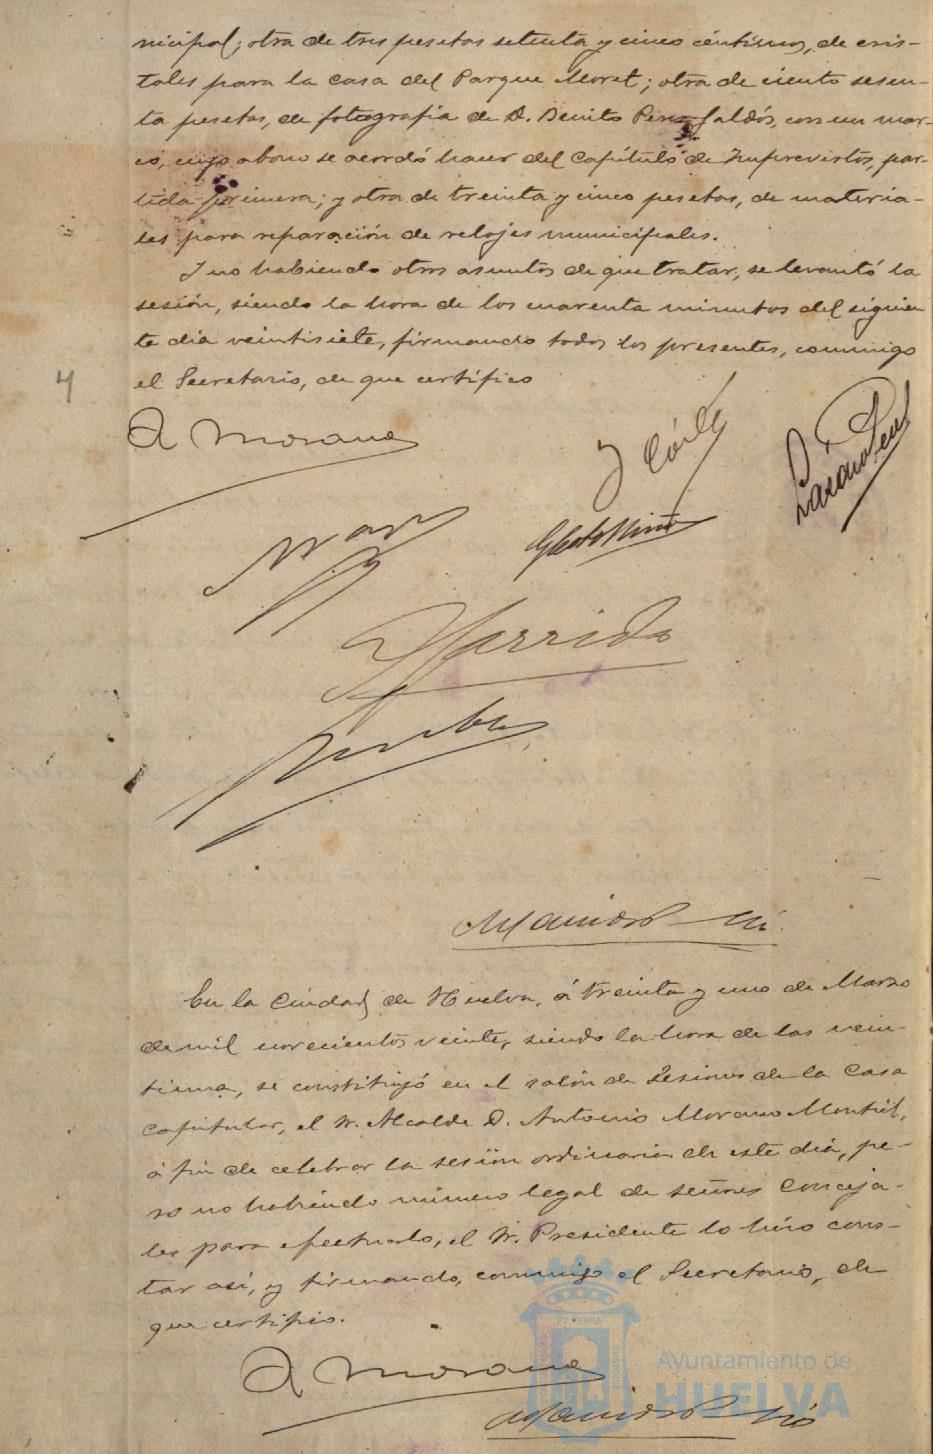 nicipal; otra de tres pesetas setenta y cinco céntimos, de cris-
tales para la casa del Parque Moret; otra de ciento sesen-
ta pesetas, de fotografía de D. Benito Perez Galdós, con un mar-
co, cuyo abono se acordó hacer del Capítulo de Imprevistos, par-
tida primera; y otra de treinta y cinco pesetas, de materia-
les para reparación de relojes municipales.
Y no habiendo otros asuntos de que tratar, se levantó la
sesión, siendo la hora de los cuarenta minutos del siguien
te dia veintisiete, firmando todos los presentes, conmigo
el Secretario, de que certifico
4
A Morano
Garrido
En la Ciudad de Huelva, á treinta y uno de Marzo
de mil novecientos veinte, siendo la hora de las vein-
tiuna, se constituyó en el salón de Sesiones de la Casa
Capitular, el Sr. Alcalde D. Antonio Morano Montiel,
á fin de celebrar la sesión ordinaria de este día, pe-
ro no habiendo número legal de señores Conceja-
les para efectuarlo, el Sr. Presidente lo hizo cons-
tar así, y firmando, conmigo el Secretario, de
que certifico.
A Morano
Ayuntamiento de
HUELVA